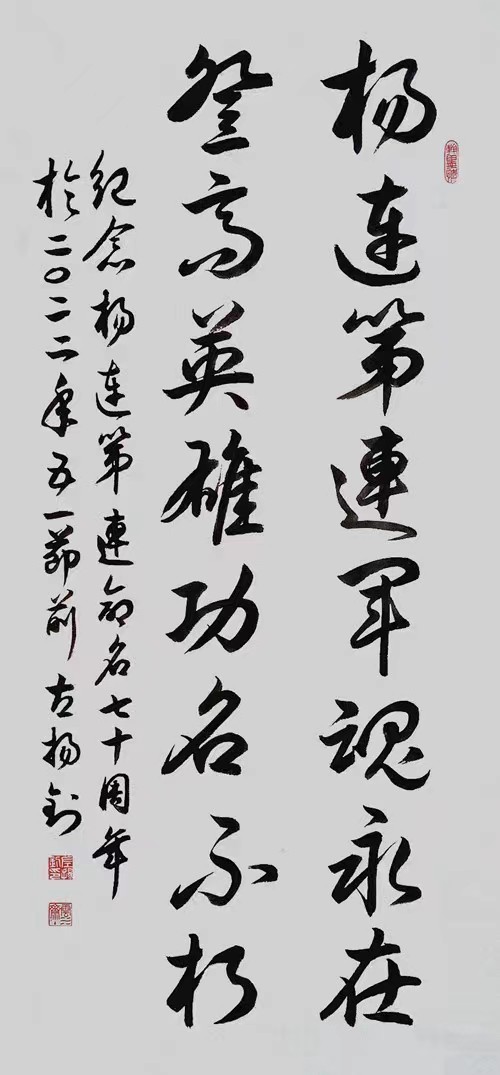 杨连第連军魂永在
登高英雄功名不朽
纪念杨连第連命名七十周年
於二〇二二年五一节前